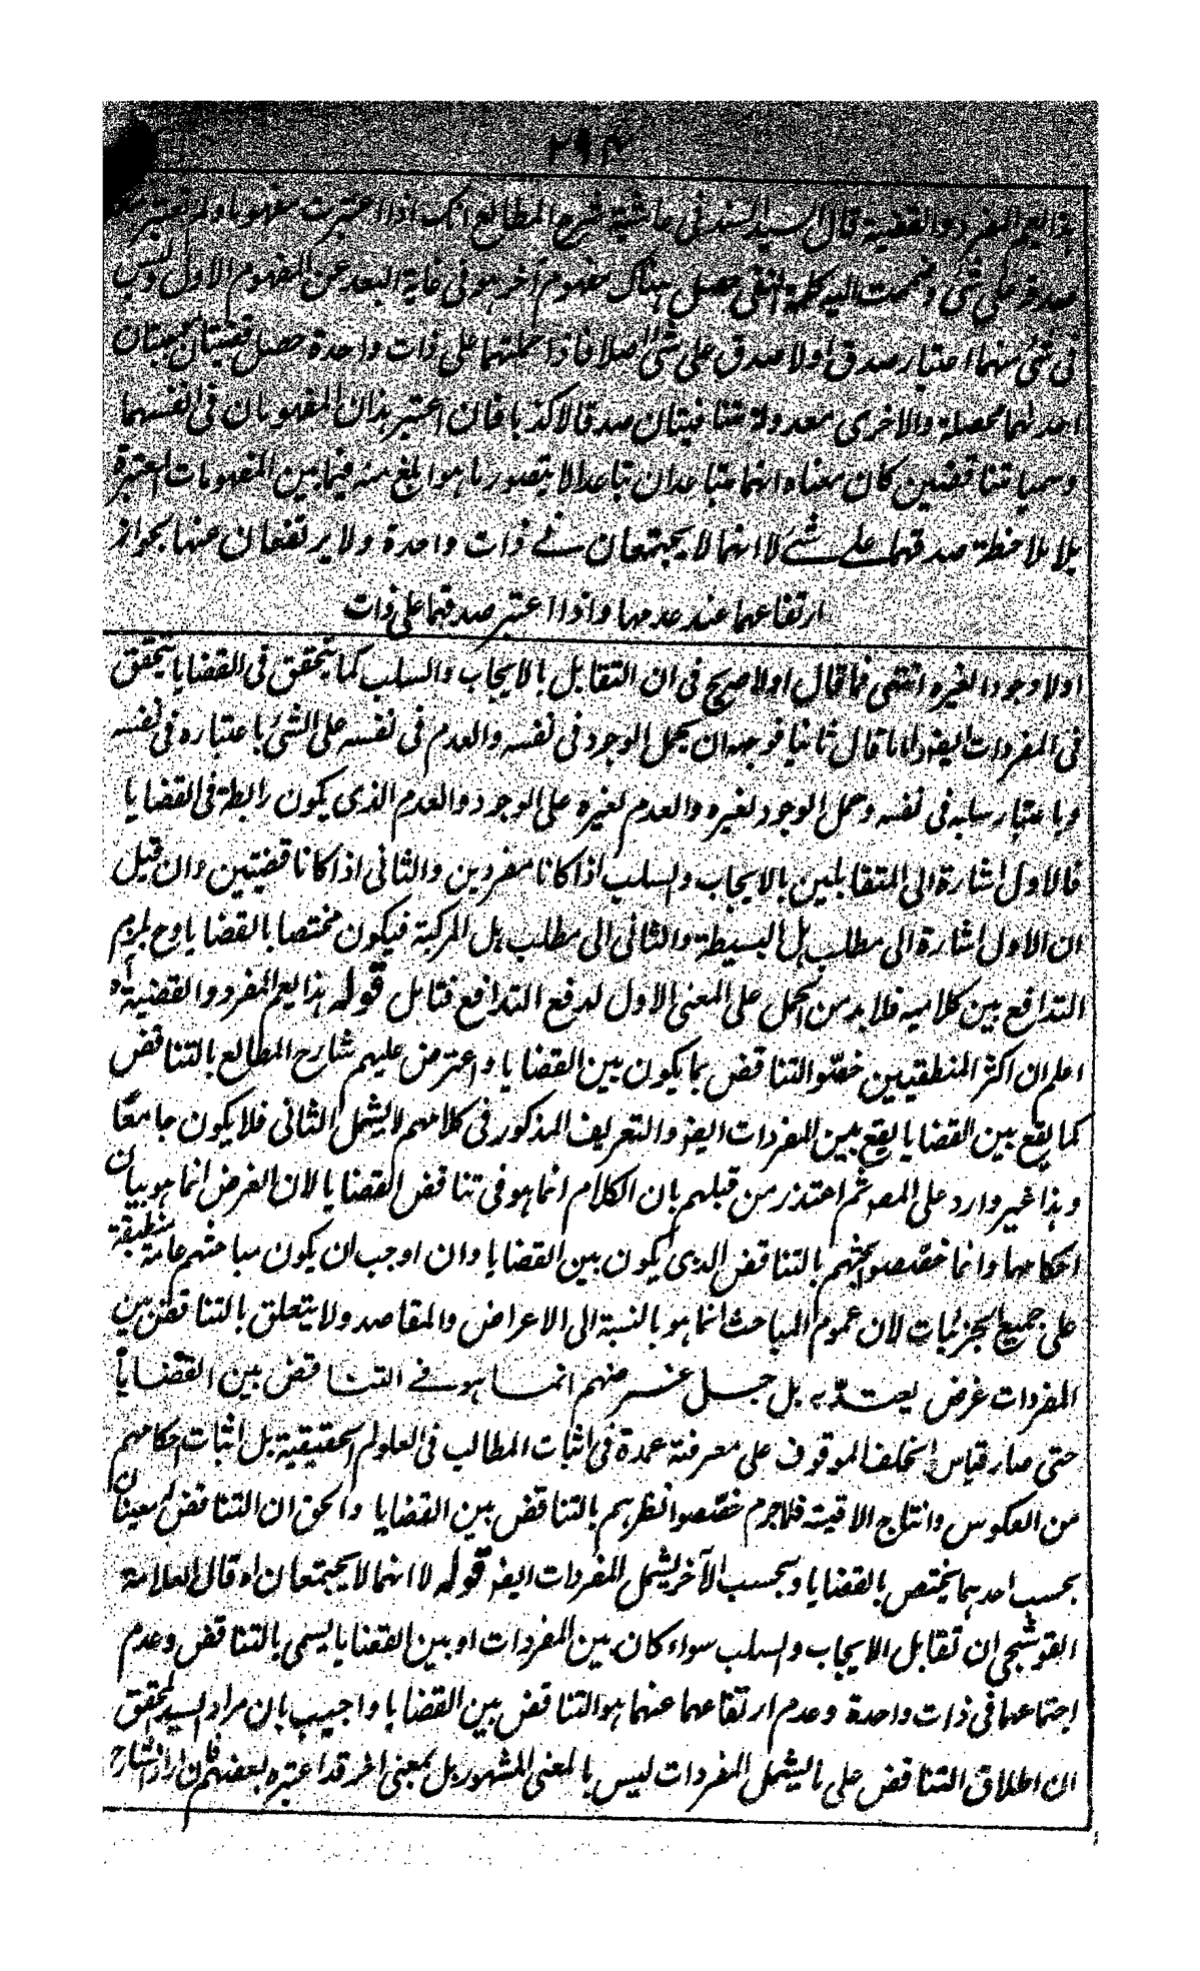 ٢٩٤
هذا يعم المفرد والقضية قال السيد السند فى حاشية شرح المطالع انك اذا اعتبرت مفهوما ولم تعتبر معه
صدقه على شئ وضممت اليه كلمة النفى حصل هناك مفهوم آخر هو فى غاية البعد عن المفهوم الاول وليس
فى شئ منهما اعتبار صدق اولا صدق على شئ اصلا فاذا حملتهما على ذات واحدة حصل قضيتان موجبتان
احدٰهما محصلة والاخرى معدولة متنافيتان صدقا لا كذبا فان اعتبر هذان المفهومان فى انفسهما
وسميا متناقضين كان معناه انهما متباعدان تباعدا لا يتصور ما هو ابلغ منه فيما بين المفهومات المعتبرة
بلا ملاحظة صدقهما على شئ لا انهما لا يجتمعان فے ذات واحدة ولا يرتفعان عنها بجواز
ارتفاعهما عند عدمها واذا اعتبر صدقهما على ذات
اولا وجود الغيره انتهى فما قال اولا صريح فى ان التقابل بالايجاب والسلب كما يتحقق فى القضايا يتحقق
فى المفردات ايضا واما ما قال ثانيا فوجهه ان يحمل الوجود فى نفسه والعدم فى نفسه على الشئ باعتباره فى نفسه
وباعتبار سلبه فى نفسه وحمل الوجود لغيره والعدم لغيره على الوجود والعدم الذى يكون رابطة فى القضايا
فالاول اشارة الى المتقابلين بالايجاب والسلب اذا كانا مفردين والثانى اذا كانا قضيتين وان قيل
ان الاول اشارة الى مطلب هل البسيطة والثانى الى مطلب هل المركبة فيكون مختصا بالقضايا وح يلزم
التدافع بين كلاميه فلا بد من الحمل على المعنى الاول لدفع التدافع فتامل قوله هذا يعم المفرد والقضية اه
اعلم ان اكثر المنطقيين خصّوا التناقض بما يكون بين القضايا واعترض عليهم شارح المطالع بالتناقض
كما يقع بين القضايا يقع بين المفردات ايضا والتعريف المذكور فى كلامهم لا يشمل الثانى فلا يكون جامعًا
وهذا غير وارد على المصه ثم اعتذر من قبلهم بان الكلام انما هو فى تناقض القضايا لان الغرض انما هو بيان
احكامها وانما خصّصوا بحثهم بالتناقض الذى يكون بين القضايا وان اوجب ان يكون مباحثهم عامة منطبقة
على جميع الجزئيات لان عموم المباحث انما هو بالنسبة الى الاغراض والمقاصد ولا يتعلق بالتناقض بين
المفردات غرض يعتدّ به بل جل غرضهم انما هو فے التناقض بين القضايا
حتى صار قياس الخلف الموقوف على معرفته عمدة فى اثبات المطالب فى العلوم الحقيقية بل اثبات احكامهم
من العكوس وانتاج الاقيسة فلاجرم خصّصوا نظرهم بالتناقض بين القضايا والحق ان التناقض له معنيان
بحسب احدهما يختص بالقضايا وبحسب الآخر يشمل المفردات ايضا قوله لا انهما لا يجتمعان اه قال العلامة
القوشجى ان تقابل الايجاب والسلب سواء كان بين المفردات او بين القضايا يسمى بالتناقض وعدم
اجتماعهما فى ذات واحدة وعدم ارتفاعهما عنهما هو التناقض بين القضايا واجيب بان مراد السيد المحقق
ان اطلاق التناقض على ما يشمل المفردات ليس بالمعنى المشهور بل بمعنى آخر قد اعتبره بعضهم فان اراد الشارح